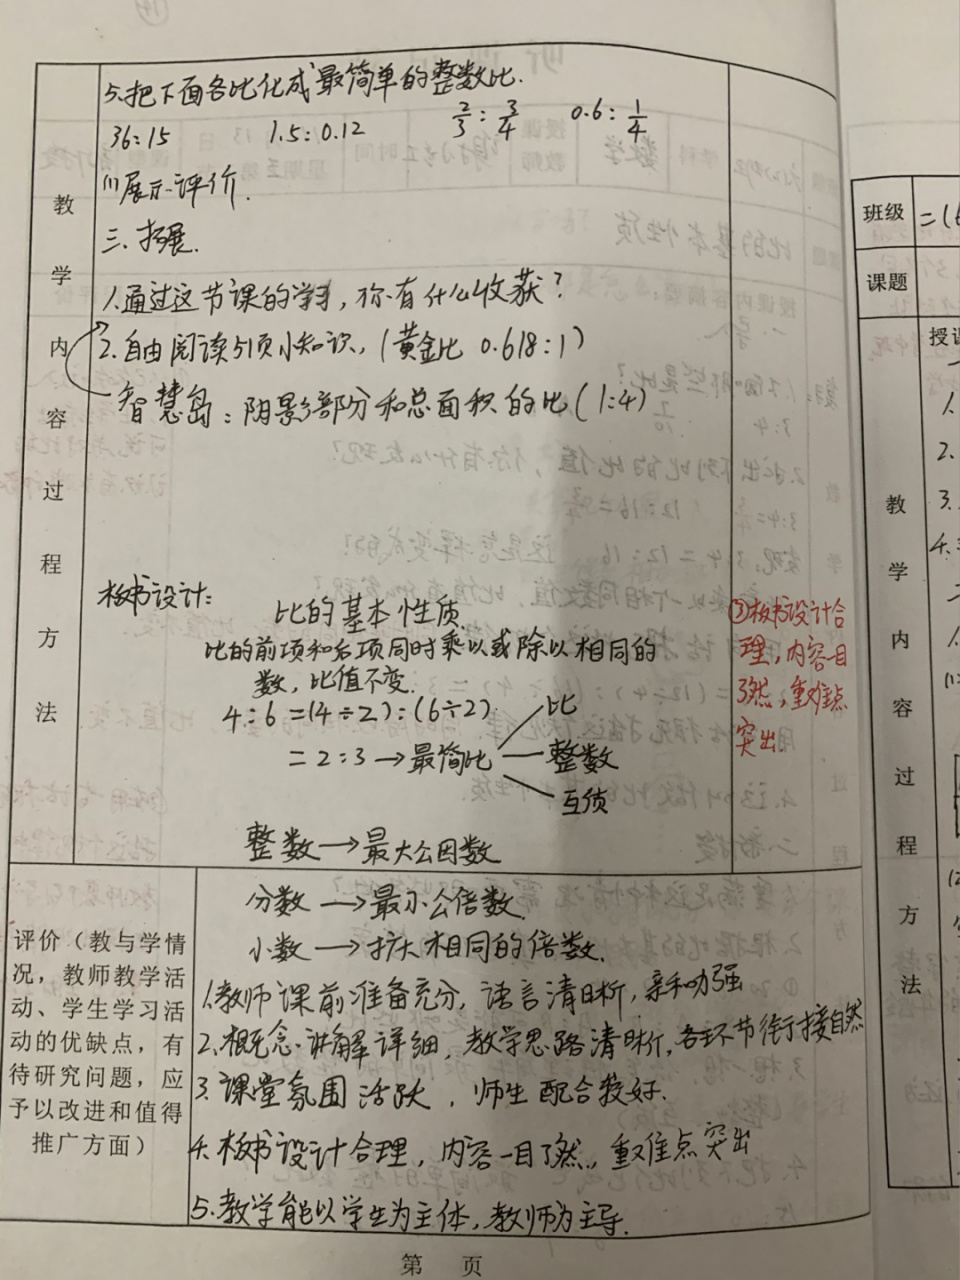 5.把下面各比化成最简单的整数比.
36:15 1.5:0.12 2/3:3/4 0.6:1/4
(1)展示评价.
三、拓展.
1.通过这节课的学习，你有什么收获？
2.自由阅读51页小知识，(黄金比 0.618:1)
智慧岛：阴影部分和总面积的比(1:4)
教学内容过程方法
板书设计:
比的基本性质.
比的前项和后项同时乘以或除以相同的
数，比值不变.
4:6=(4÷2):(6÷2)
=2:3→最简比
比
整数
互质
整数→最大公因数
分数→最小公倍数.
小数→扩大相同的倍数.
③板书设计合
理，内容一目
了然，重难点
突出.
评价（教与学情
况，教师教学活
动、学生学习活
动的优缺点，有
待研究问题，应
予以改进和值得
推广方面）
1.教师课前准备充分，语言清晰，亲和力强
2.概念讲解详细，教学思路清晰，各环节衔接自然
3.课堂氛围活跃，师生配合较好.
4.板书设计合理，内容一目了然，重难点突出
5.教学能以学生为主体，教师为主导.
第 页
班级
课题
授课
1.
2.
3.
4.
教学内容过程方法